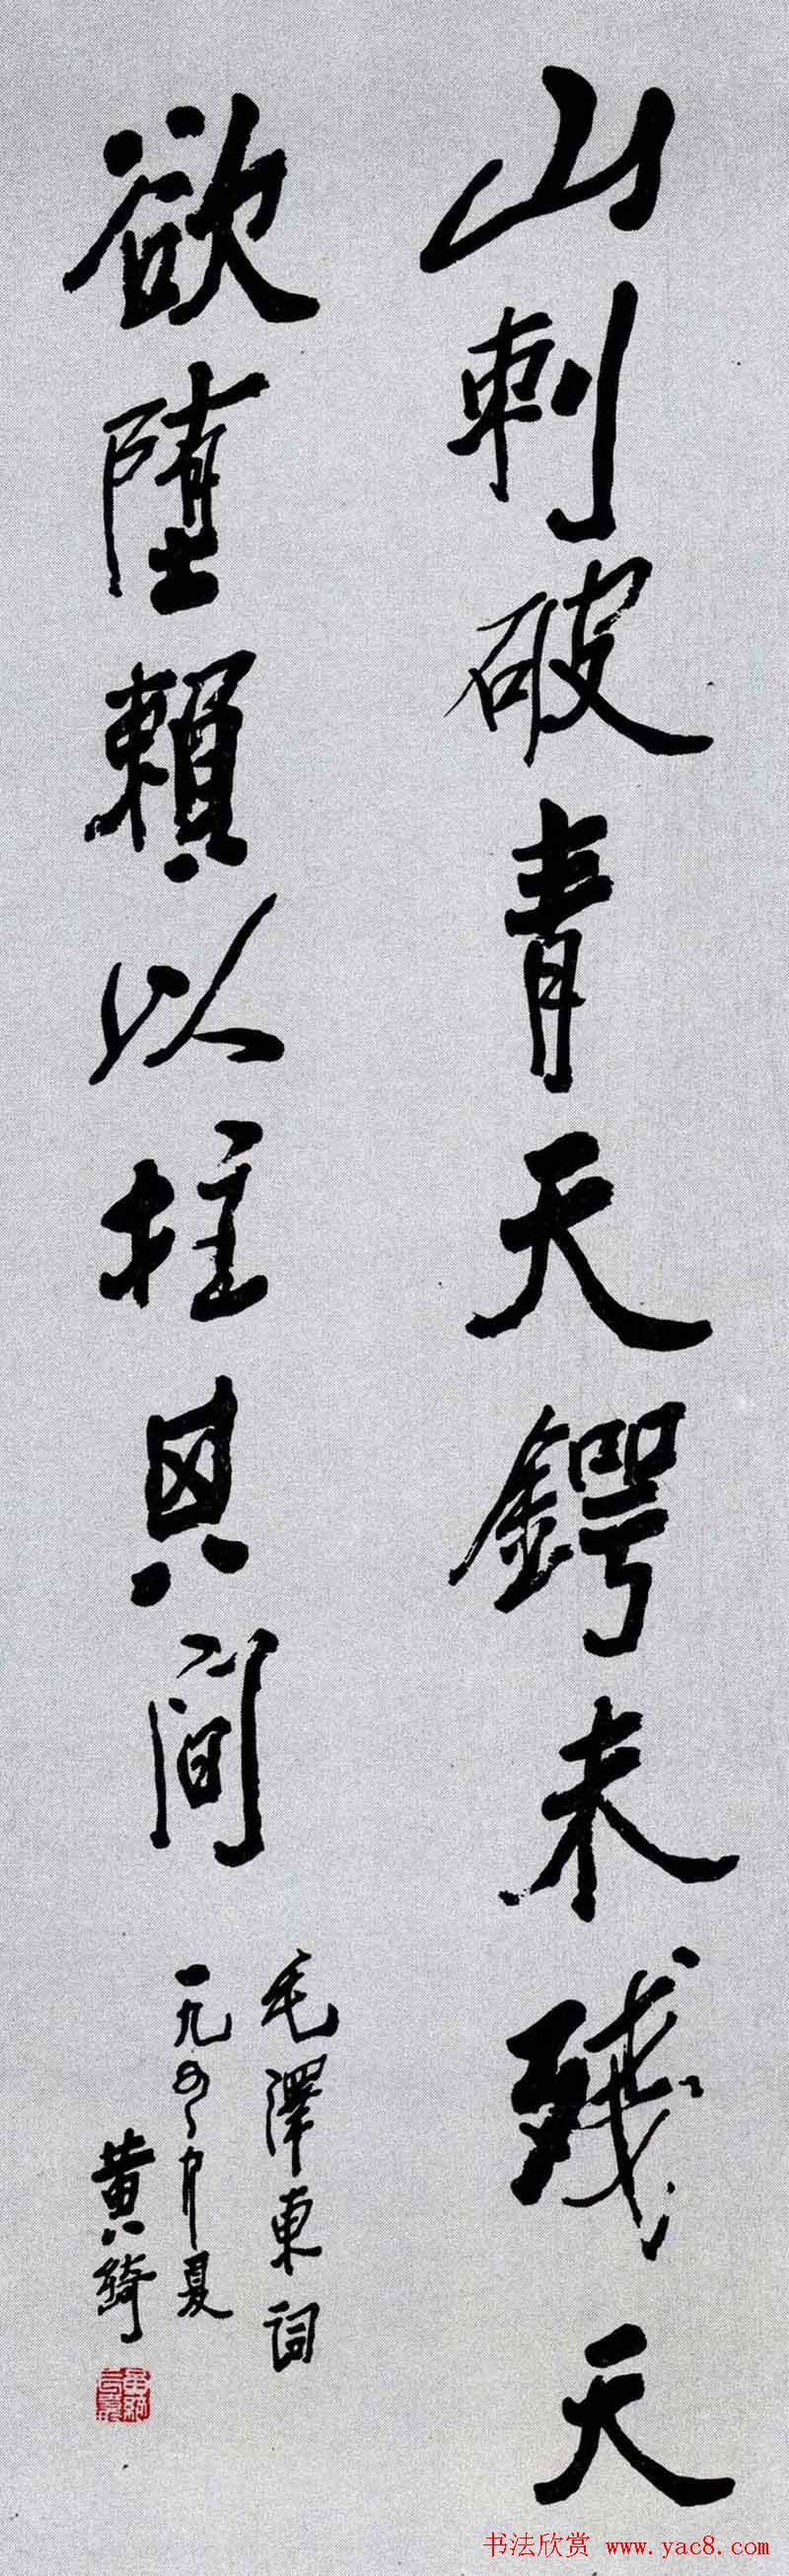 山刺破青天鍔未残天
欲墮賴以拄其間
毛澤東詞
夏
黄綺
书法欣赏 www.yac8.com